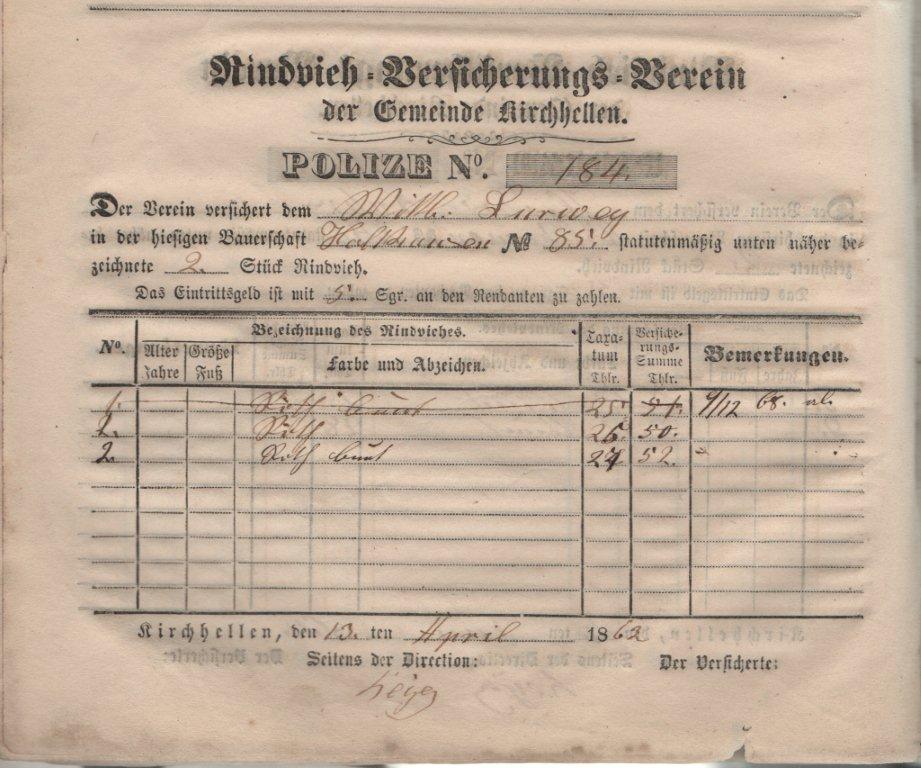 Rindvieh-Versicherungs-Verein
der Gemeinde Kirchhellen.
POLIZE No. 184.
Der Verein versichert dem Wilh.
in der hiesigen Bauerschaft No 85. statutenmäßig unten näher be-
zeichnete 2. Stück Rindvieh.
Das Eintrittsgeld ist mit 5. Sgr. an den Rendanten zu zahlen.
No. Bezeichnung des Rindviehes. Taxa-tum Thlr. Versiche-rungs-Summe Thlr. Bemerkungen.
Alter Jahre Größe Fuß Farbe und Abzeichen.
1. Roth bunt 25. 9/12 68.
Roth 50.
2. Roth bunt 52.
Kirchhellen, den 13. ten April 186
Seitens der Direction: Der Versicherte: